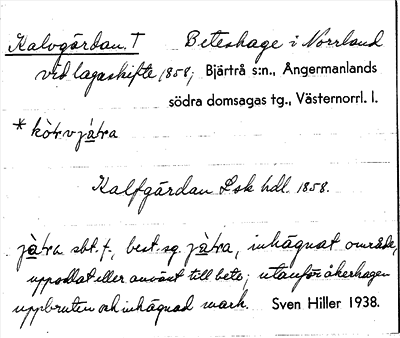 Kalvgårdan. T Beteshage i Norrland
vid lagaskifte 1858; Bjärtrå s:n., Ångermanlands
södra domsagas tg., Västernorrl. l.
* kò̀rvjàtra
Kalfgårdan Lsk hdl. 1858.
jàtra sbt. f., best. sg. jàtra, inhägnat område,
uppodlat eller använt till bete; utanför åkerhagen
uppbruten och inhägnad mark. Sven Hiller 1938.